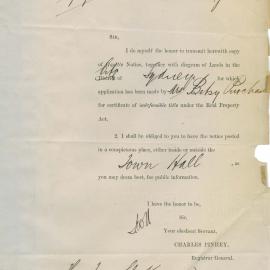 Sir,
I do myself the honor to transmit herewith copy
of Notice, together with diagram of Lands in the
of Sydney for which
application has been made by Mrs Betsy
for certificate of indefeasible title under the Real Property
Act.
2. I shall be obliged to you to have the notice posted
in a conspicuous place, either inside or outside the
Town Hall as
you may deem best, for public information.
I have the honor to be,
Sir,
Your obedient Servant,
CHARLES PINHEY,
Registrar General.